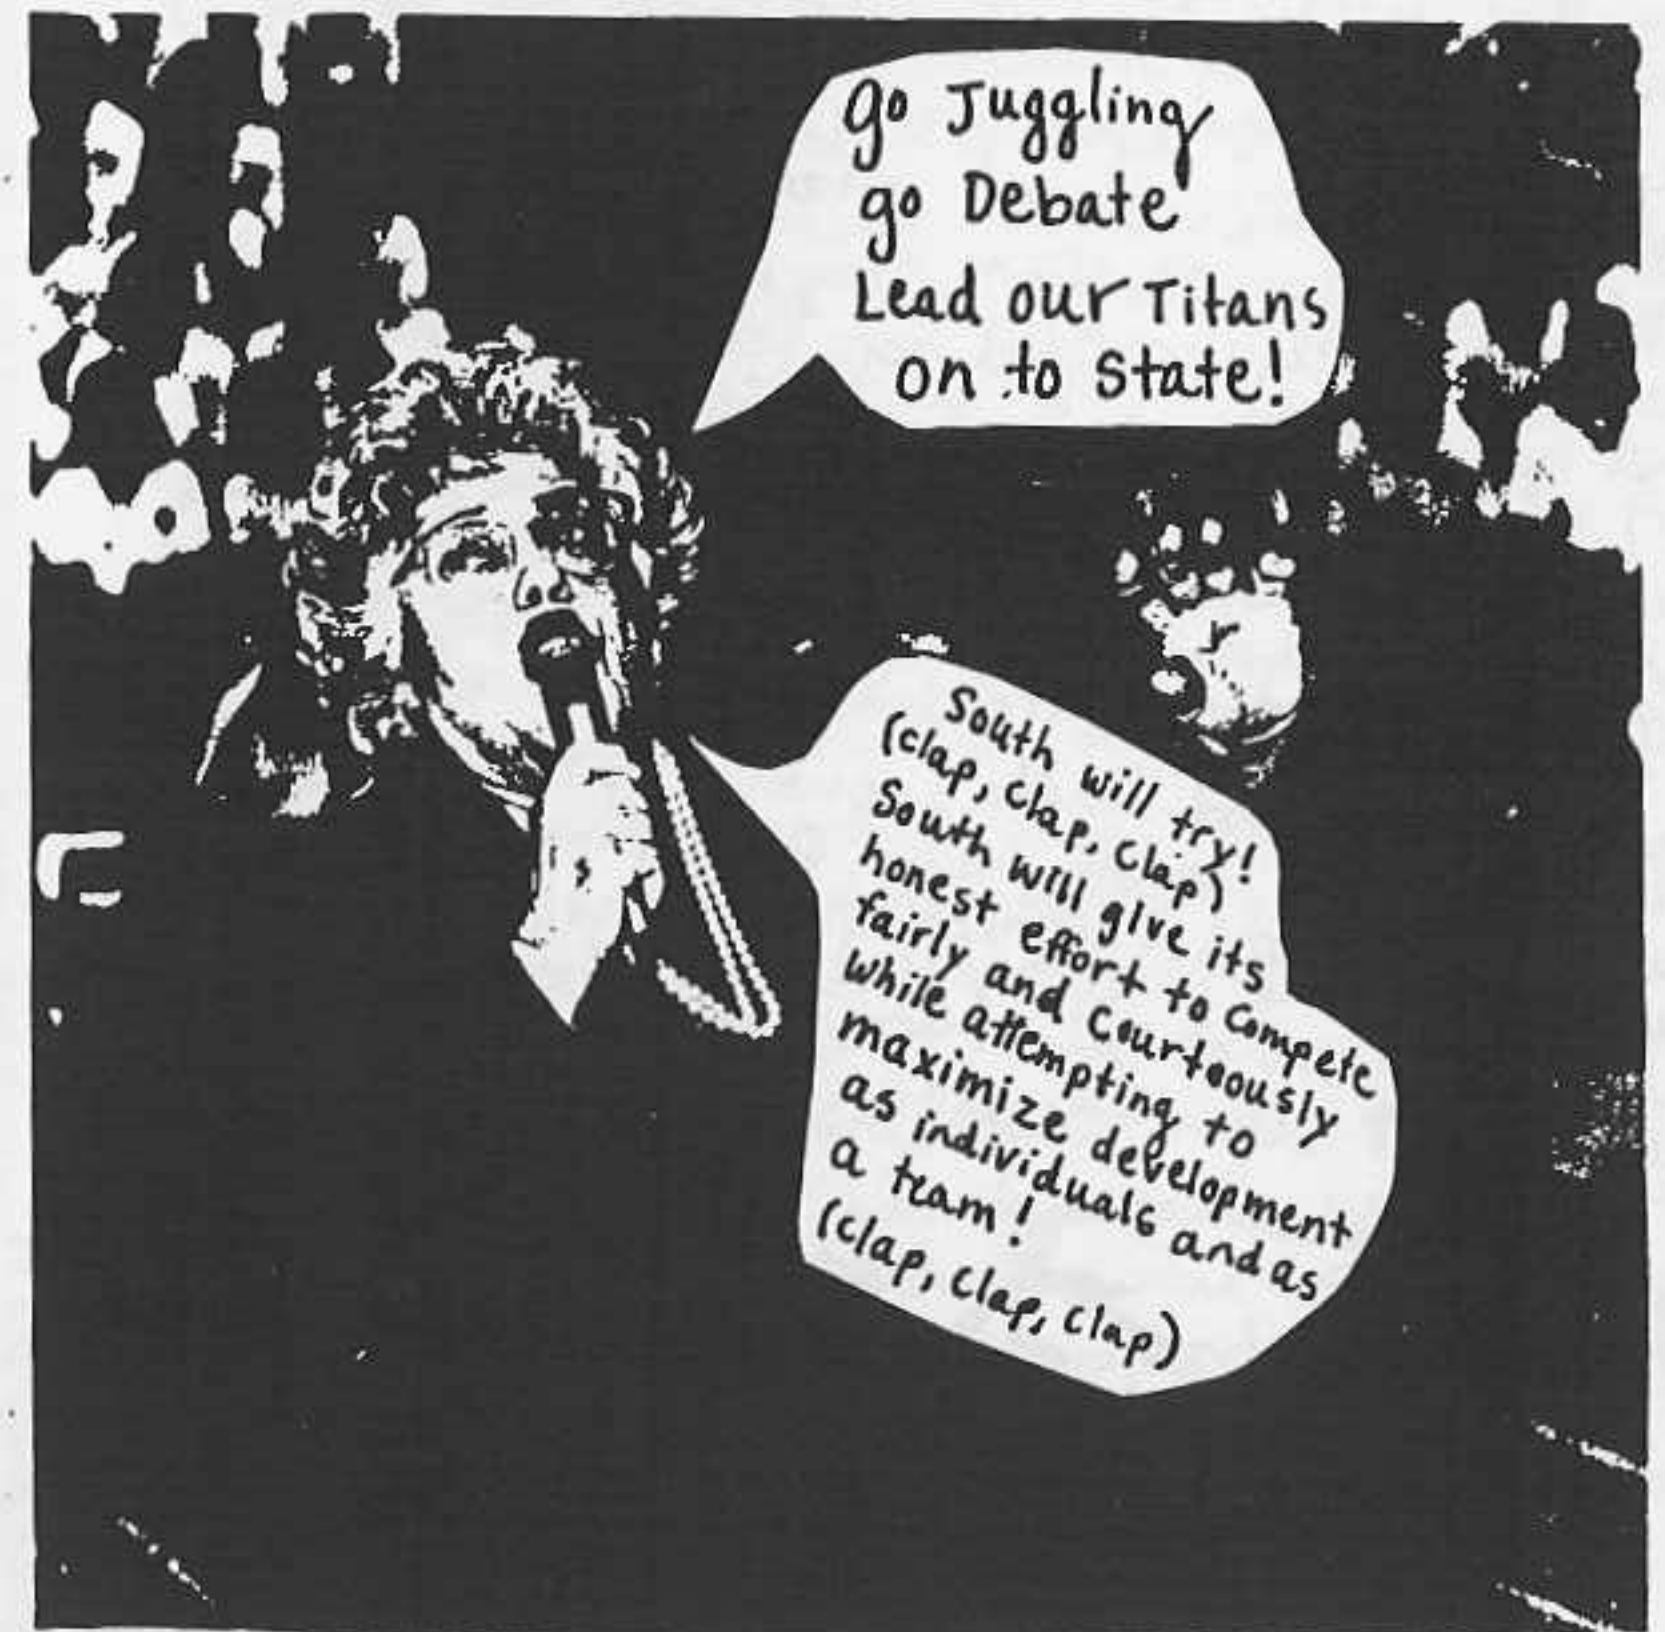 go Juggling
go Debate
Lead our Titans
on to State!
South will try!
(clap, clap, clap)
South will give its
honest effort to compete
fairly and courteously
while attempting to
maximize development
as individuals and as
a team!
(clap, clap, clap)